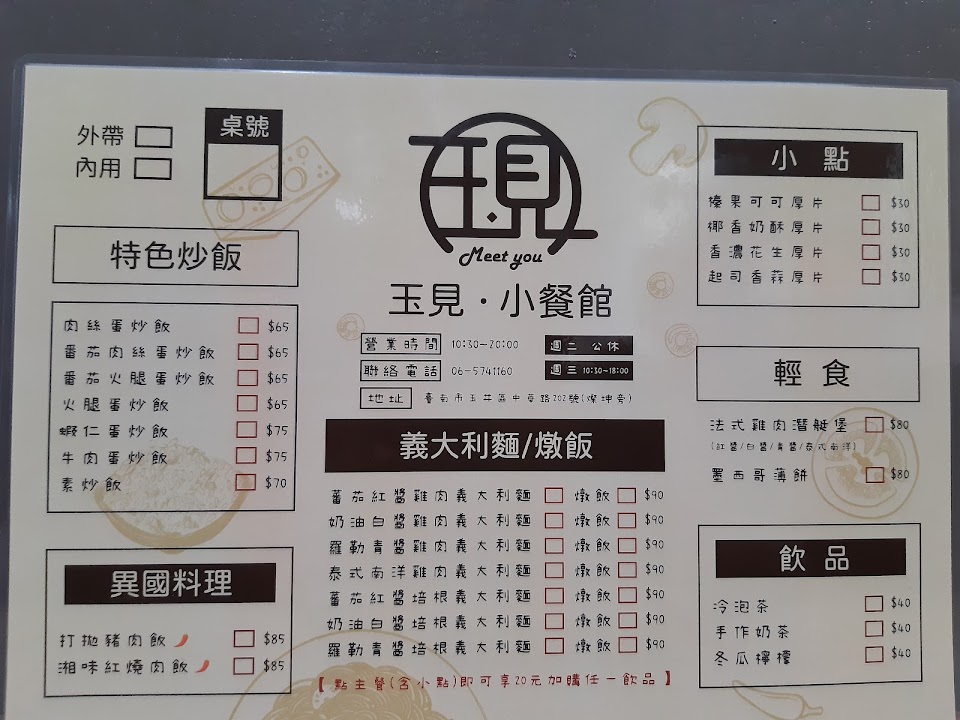 外帶
內用
桌號
玉見
Meet you
玉見·小餐館
營業時間 10:30~20:00 週二 公休
聯絡電話 06-5741160 週三 10:30~18:00
地址 臺南市玉井區中華路202號(燦坤旁)
特色炒飯
肉絲蛋炒飯 $65
番茄肉絲蛋炒飯 $65
番茄火腿蛋炒飯 $65
火腿蛋炒飯 $65
蝦仁蛋炒飯 $75
牛肉蛋炒飯 $75
素炒飯 $70
異國料理
打拋豬肉飯 $85
湘味紅燒肉飯 $85
義大利麵/燉飯
蕃茄紅醬雞肉義大利麵 燉飯 $90
奶油白醬雞肉義大利麵 燉飯 $90
羅勒青醬雞肉義大利麵 燉飯 $90
泰式南洋雞肉義大利麵 燉飯 $90
蕃茄紅醬培根義大利麵 燉飯 $90
奶油白醬培根義大利麵 燉飯 $90
羅勒青醬培根義大利麵 燉飯 $90
【點主餐(含小點)即可享20元加購任一飲品】
小點
榛果可可厚片 $30
椰香奶酥厚片 $30
香濃花生厚片 $30
起司香蒜厚片 $30
輕食
法式雞肉潛艇堡 $80
(紅醬/白醬/青醬/泰式南洋)
墨西哥薄餅 $80
飲品
冷泡茶 $40
手作奶茶 $40
冬瓜檸檬 $40